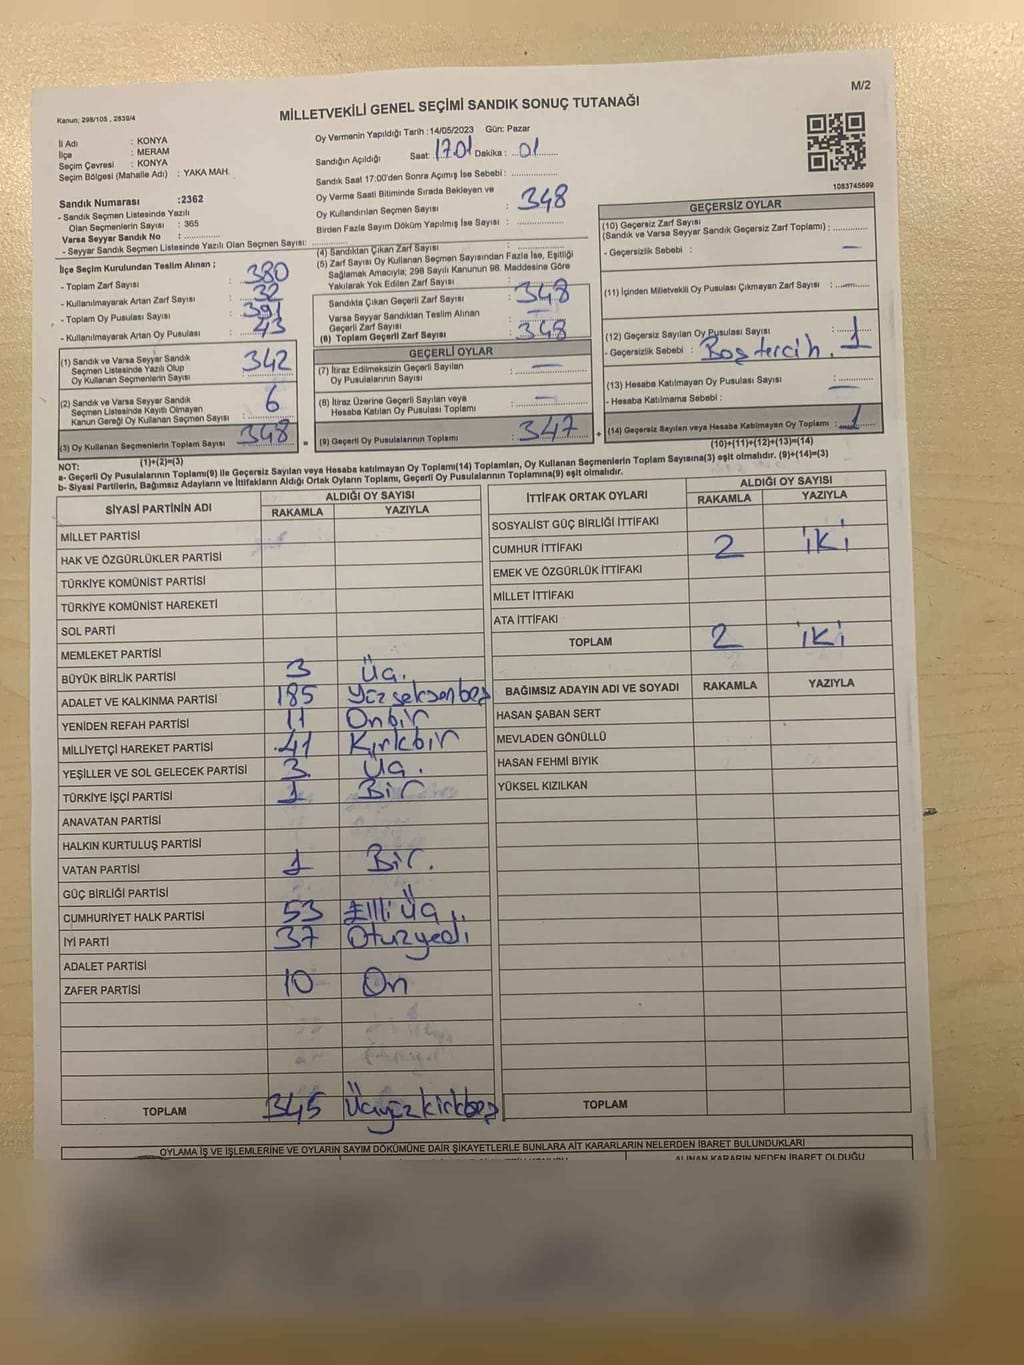 M/2
Kanun; 298/105 , 2839/4
MİLLETVEKİLİ GENEL SEÇİMİ SANDIK SONUÇ TUTANAĞI
İl Adı : KONYA
İlçe : MERAM
Seçim Çevresi : KONYA
Seçim Bölgesi (Mahalle Adı) : YAKA MAH.
Sandık Numarası :2362
- Sandık Seçmen Listesinde Yazılı
Olan Seçmenlerin Sayısı : 365
Varsa Seyyar Sandık No :
- Seyyar Sandık Seçmen Listesinde Yazılı Olan Seçmen Sayısı:
Oy Vermenin Yapıldığı Tarih :14/05/2023 Gün: Pazar
Sandığın Açıldığı Saat: 17.01 Dakika : 01
Sandık Saat 17:00'den Sonra Açılmış İse Sebebi :
Oy Verme Saati Bitiminde Sırada Bekleyen ve
Oy Kullandırılan Seçmen Sayısı : 348
Birden Fazla Sayım Döküm Yapılmış İse Sayısı :
1083745699
İlçe Seçim Kurulundan Teslim Alınan ;
- Toplam Zarf Sayısı : 380
- Kullanılmayarak Artan Zarf Sayısı : 32
- Toplam Oy Pusulası Sayısı : 391
- Kullanılmayarak Artan Oy Pusulası : 43
(1) Sandık ve Varsa Seyyar Sandık
Seçmen Listesinde Yazılı Olup
Oy Kullanan Seçmenlerin Sayısı : 342
(2) Sandık ve Varsa Seyyar Sandık
Seçmen Listesinde Kayıtlı Olmayan
Kanun Gereği Oy Kullanan Seçmen Sayısı : 6
(3) Oy Kullanan Seçmenlerin Toplam Sayısı : 348
(1)+(2)=(3)
(4) Sandıktan Çıkan Zarf Sayısı :
(5) Zarf Sayısı Oy Kullanan Seçmen Sayısından Fazla İse, Eşitliği
Sağlamak Amacıyla; 298 Sayılı Kanunun 98. Maddesine Göre
Yakılarak Yok Edilen Zarf Sayısı :
Sandıkta Çıkan Geçerli Zarf Sayısı : 348
Varsa Seyyar Sandıktan Teslim Alınan
Geçerli Zarf Sayısı : —
(6) Toplam Geçerli Zarf Sayısı : 348
GEÇERLİ OYLAR
(7) İtiraz Edilmeksizin Geçerli Sayılan
Oy Pusulalarının Sayısı : —
(8) İtiraz Üzerine Geçerli Sayılan veya
Hesaba Katılan Oy Pusulası Toplamı : —
= (9) Geçerli Oy Pusulalarının Toplamı : 347 +
GEÇERSİZ OYLAR
(10) Geçersiz Zarf Sayısı
(Sandık ve Varsa Seyyar Sandık Geçersiz Zarf Toplamı) :
- Geçersizlik Sebebi : —
(11) İçinden Milletvekili Oy Pusulası Çıkmayan Zarf Sayısı : —
(12) Geçersiz Sayılan Oy Pusulası Sayısı : 1
- Geçersizlik Sebebi : Boş tercih.
(13) Hesaba Katılmayan Oy Pusulası Sayısı : —
- Hesaba Katılmama Sebebi :
(14) Geçersiz Sayılan veya Hesaba Katılmayan Oy Toplamı : 1
(10)+(11)+(12)+(13)=(14)
NOT:
a- Geçerli Oy Pusulalarının Toplamı(9) ile Geçersiz Sayılan veya Hesaba katılmayan Oy Toplamı(14) Toplamları, Oy Kullanan Seçmenlerin Toplam Sayısına(3) eşit olmalıdır. (9)+(14)=(3)
b- Siyasi Partilerin, Bağımsız Adayların ve İttifakların Aldığı Ortak Oyların Toplamı, Geçerli Oy Pusulalarının Toplamına(9) eşit olmalıdır.
SİYASİ PARTİNİN ADI ALDIĞI OY SAYISI
RAKAMLA YAZIYLA
MİLLET PARTİSİ
HAK VE ÖZGÜRLÜKLER PARTİSİ
TÜRKİYE KOMÜNİST PARTİSİ
TÜRKİYE KOMÜNİST HAREKETİ
SOL PARTİ
MEMLEKET PARTİSİ
BÜYÜK BİRLİK PARTİSİ 3 Üç.
ADALET VE KALKINMA PARTİSİ 185 Yüzseksenbeş
YENİDEN REFAH PARTİSİ 11 Onbir
MİLLİYETÇİ HAREKET PARTİSİ 41 Kırkbir
YEŞİLLER VE SOL GELECEK PARTİSİ 3 Üç.
TÜRKİYE İŞÇİ PARTİSİ 1 Bir
ANAVATAN PARTİSİ
HALKIN KURTULUŞ PARTİSİ
VATAN PARTİSİ 1 Bir.
GÜÇ BİRLİĞİ PARTİSİ
CUMHURİYET HALK PARTİSİ 53 Elli Üç
İYİ PARTİ 37 Otuzyedi
ADALET PARTİSİ
ZAFER PARTİSİ 10 On
TOPLAM 345 Üçyüzkırkbeş
İTTİFAK ORTAK OYLARI ALDIĞI OY SAYISI
RAKAMLA YAZIYLA
SOSYALİST GÜÇ BİRLİĞİ İTTİFAKI
CUMHUR İTTİFAKI 2 iki
EMEK VE ÖZGÜRLÜK İTTİFAKI
MİLLET İTTİFAKI
ATA İTTİFAKI
TOPLAM 2 iki
BAĞIMSIZ ADAYIN ADI VE SOYADI RAKAMLA YAZIYLA
HASAN ŞABAN SERT
MEVLADEN GÖNÜLLÜ
HASAN FEHMİ BIYIK
YÜKSEL KIZILKAN
TOPLAM
OYLAMA İŞ VE İŞLEMLERİNE VE OYLARIN SAYIM DÖKÜMÜNE DAİR ŞİKAYETLERLE BUNLARA AİT KARARLARIN NELERDEN İBARET BULUNDUKLARI
ALINAN KARARIN NEDEN İBARET OLDUĞU